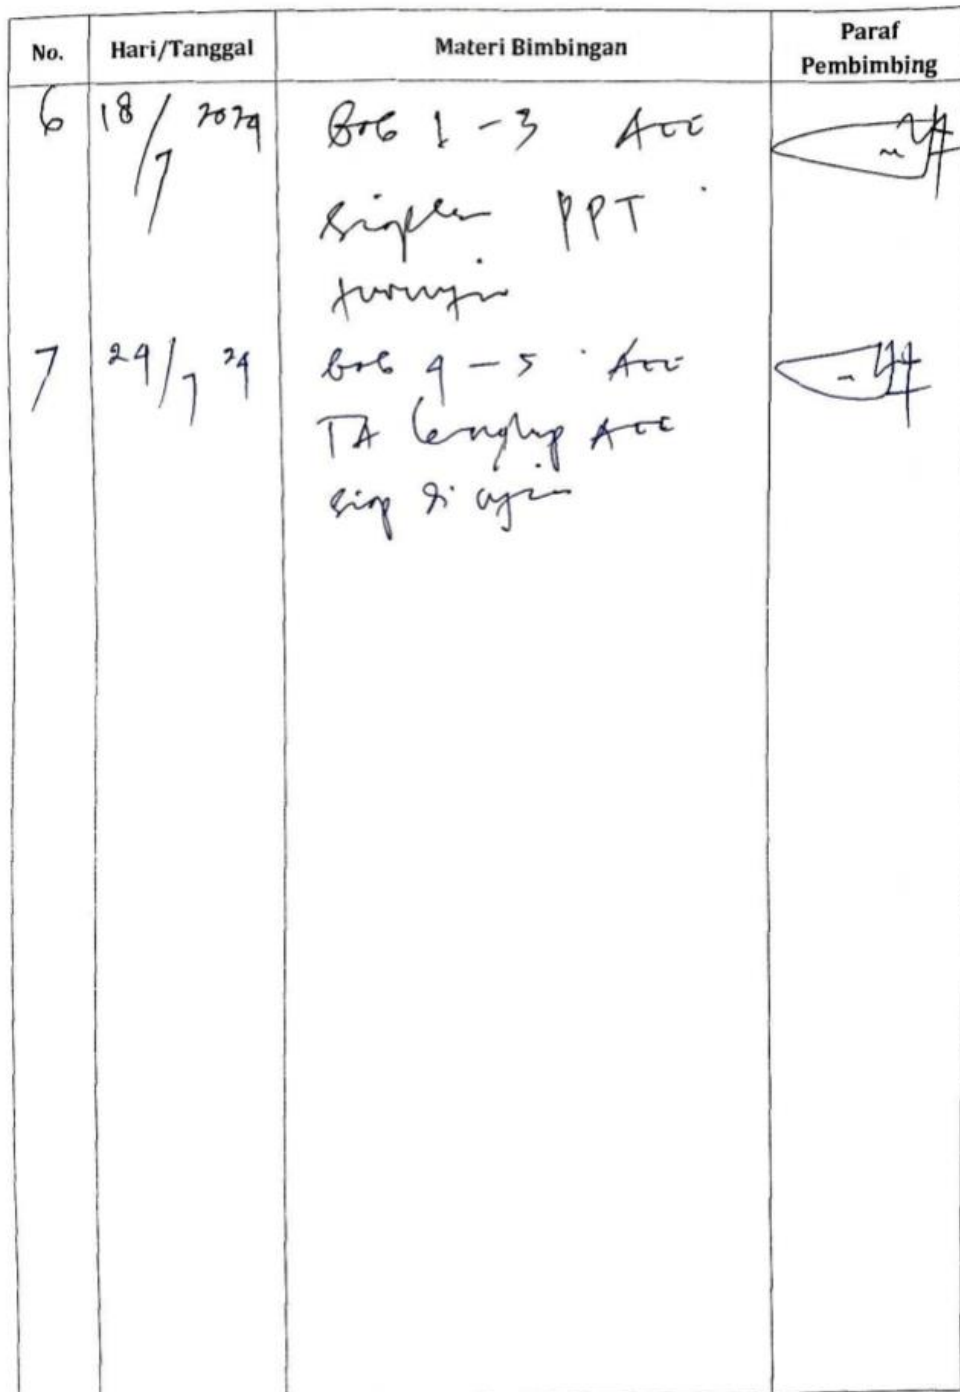 No. Hari/Tanggal Materi Bimbingan Paraf Pembimbing
6 18/7 2024 Bab 1 - 3 Acc
Siapkan PPT
7 24/7 24 bab 4 - 5 Acc
TA lengkap Acc
siap di ujikan